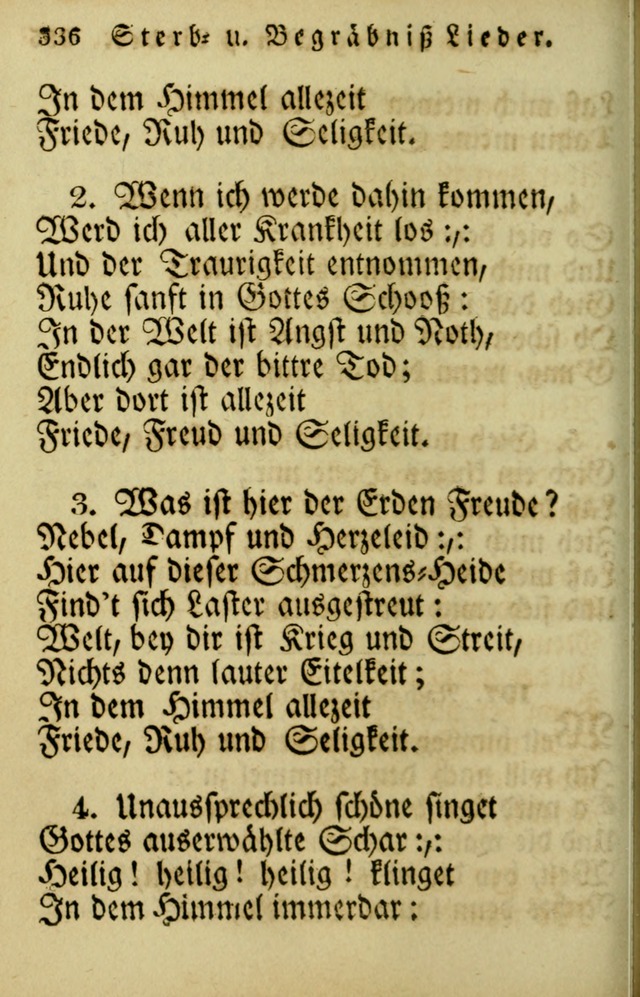 336 Sterb- u. Begräbniß Lieder.
In dem Himmel allezeit
Friede, Ruh und Seligkeit.
2. Wenn ich werde dahin kommen,
Werd ich aller Krankheit los :,:
Und der Traurigkeit entnommen,
Ruhe sanft in Gottes Schooß :
In der Welt ist Angst und Noth,
Endlich gar der bittre Tod;
Aber dort ist allezeit
Friede, Freud und Seligkeit.
3. Was ist hier der Erden Freude?
Nebel, Dampf und Herzeleid :,:
Hier auf dieser Schmerzens-Heide
Find't sich Laster ausgestreut :
Welt, bey dir ist Krieg und Streit,
Nichts denn lauter Eitelkeit;
In dem Himmel allezeit
Friede, Ruh und Seligkeit.
4. Unaussprechlich schöne singet
Gottes auserwählte Schar :,:
Heilig! heilig! heilig! klinget
In dem Himmel immerdar :